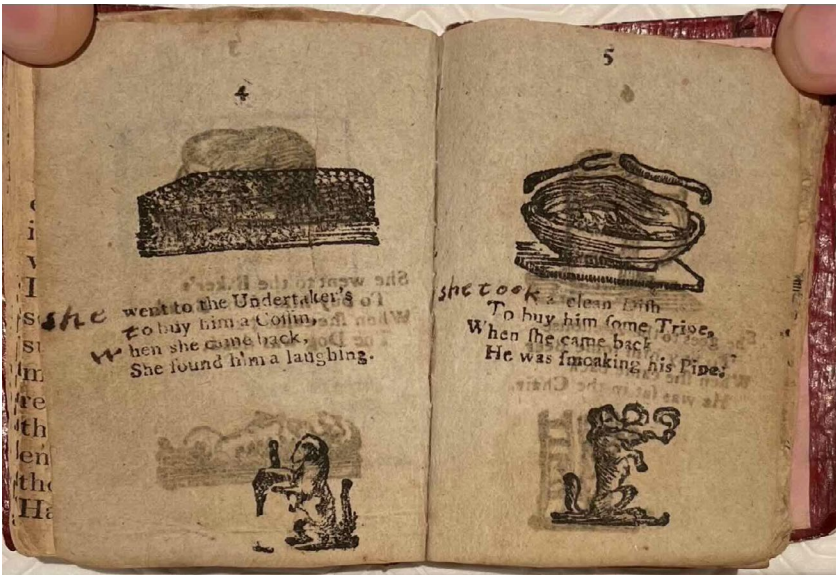 4
she went to the Undertaker's
to buy him a Coffin,
When she came back,
She found him a laughing.
5
she took a clean Dish
To buy him ſome Tripe,
When ſhe came back
He was ſmoaking his Pipe.